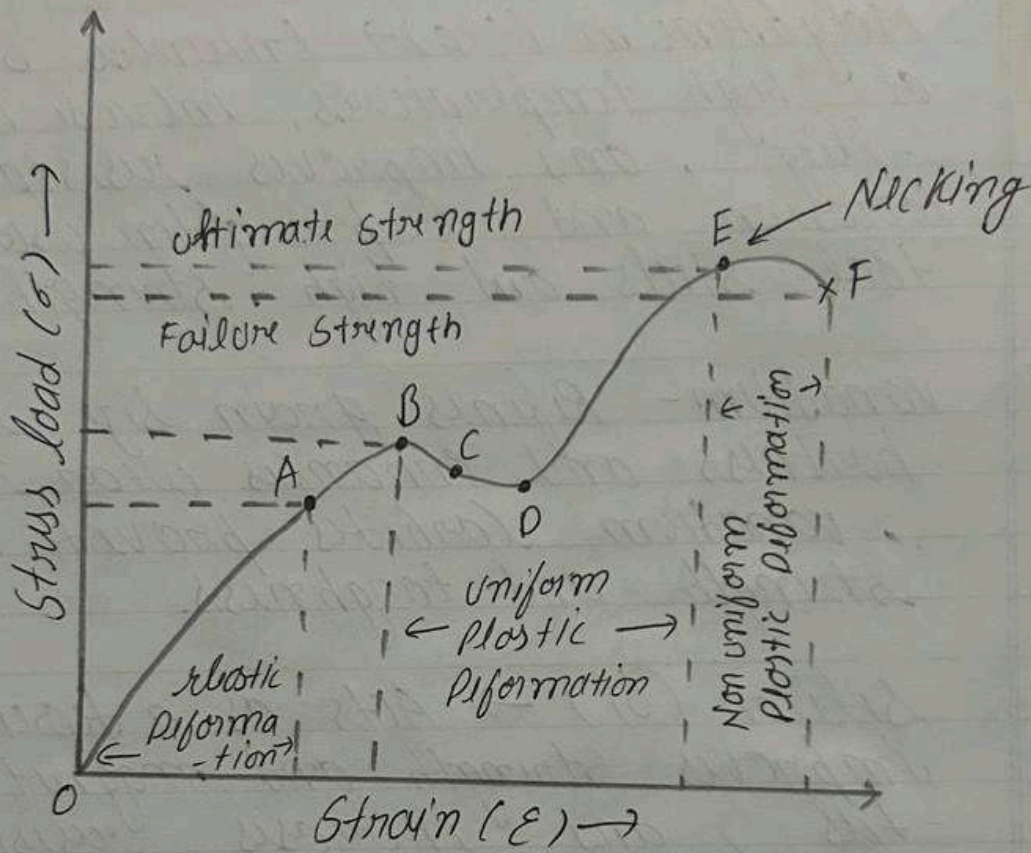 Stress load (σ) →
Ultimate Strength
Failure Strength
E
Necking
F
B
A
C
D
Elastic
Deforma
-tion
← uniform →
Plastic
Deformation
Non uniform
Plastic Deformation
O
Strain (ε) →